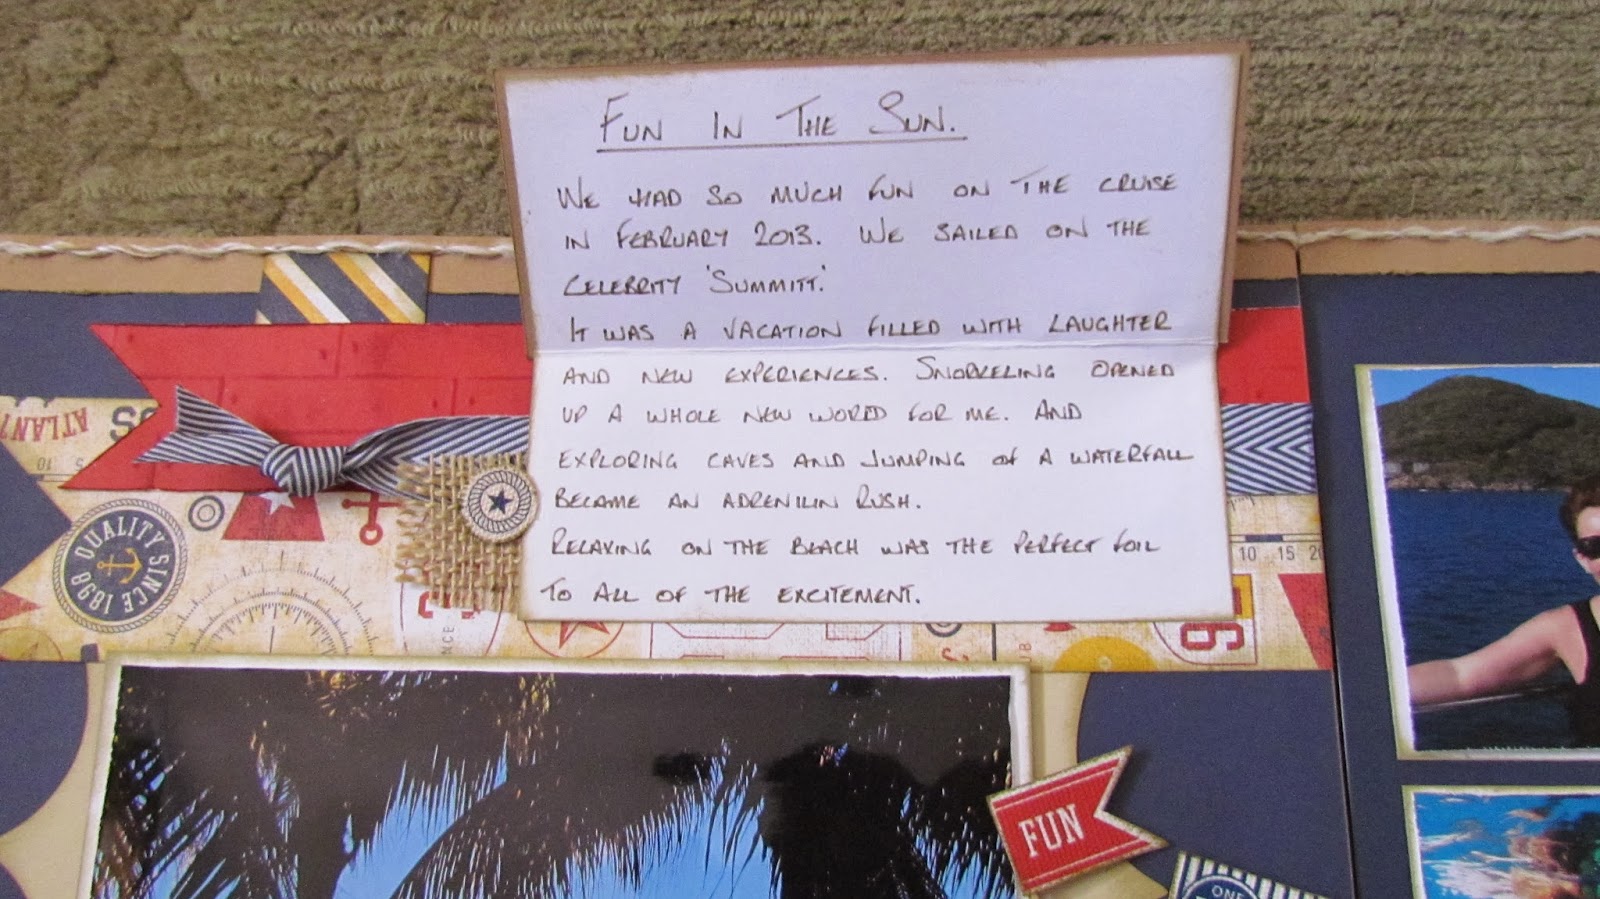 FUN IN THE SUN.
WE HAD SO MUCH FUN ON THE CRUISE
IN FEBRUARY 2013. WE SAILED ON THE
CELEBRITY 'SUMMITT.'
IT WAS A VACATION FILLED WITH LAUGHTER
AND NEW EXPERIENCES. SNORKELING OPENED
UP A WHOLE NEW WORLD FOR ME. AND
EXPLORING CAVES AND JUMPING OF A WATERFALL
BECAME AN ADRENILIN RUSH.
RELAXING ON THE BEACH WAS THE PERFECT FOIL
TO ALL OF THE EXCITEMENT.
ATLANT
5 10
QUALITY SINCE 1898
10 15 20
FUN
ONE